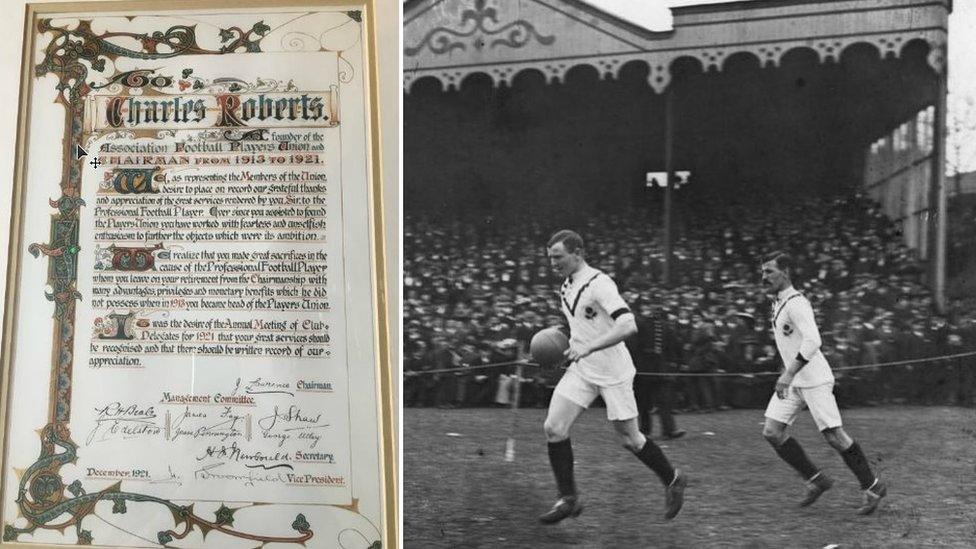 To
Charles Roberts.
A founder of the
Association Football Players Union and
CHAIRMAN FROM 1913 TO 1921.
We, as representing the Members of the Union,
desire to place on record our grateful thanks
and appreciation of the great services rendered by you Sir, to the
Professional Football Player. Ever since you assisted to found
the Players Union you have worked with fearless and unselfish
enthusiasm to further the objects which were its ambition.
We realize that you made great sacrifices in the
cause of the Professional Football Player
whom you leave on your retirement from the Chairmanship with
many advantages, privileges and monetary benefits which he did
not possess when in 1913 you became head of the Players Union.
It was the desire of the Annual Meeting of Club
Delegates for 1921 that your great services should
be recognised and that there should be written record of our
appreciation.
J Lawrence Chairman.
Management Committee.
James Fay J Shaw
Jesse Pennington George Utley
H J Newbould. Secretary.
December, 1921. J. Broomfield Vice President.